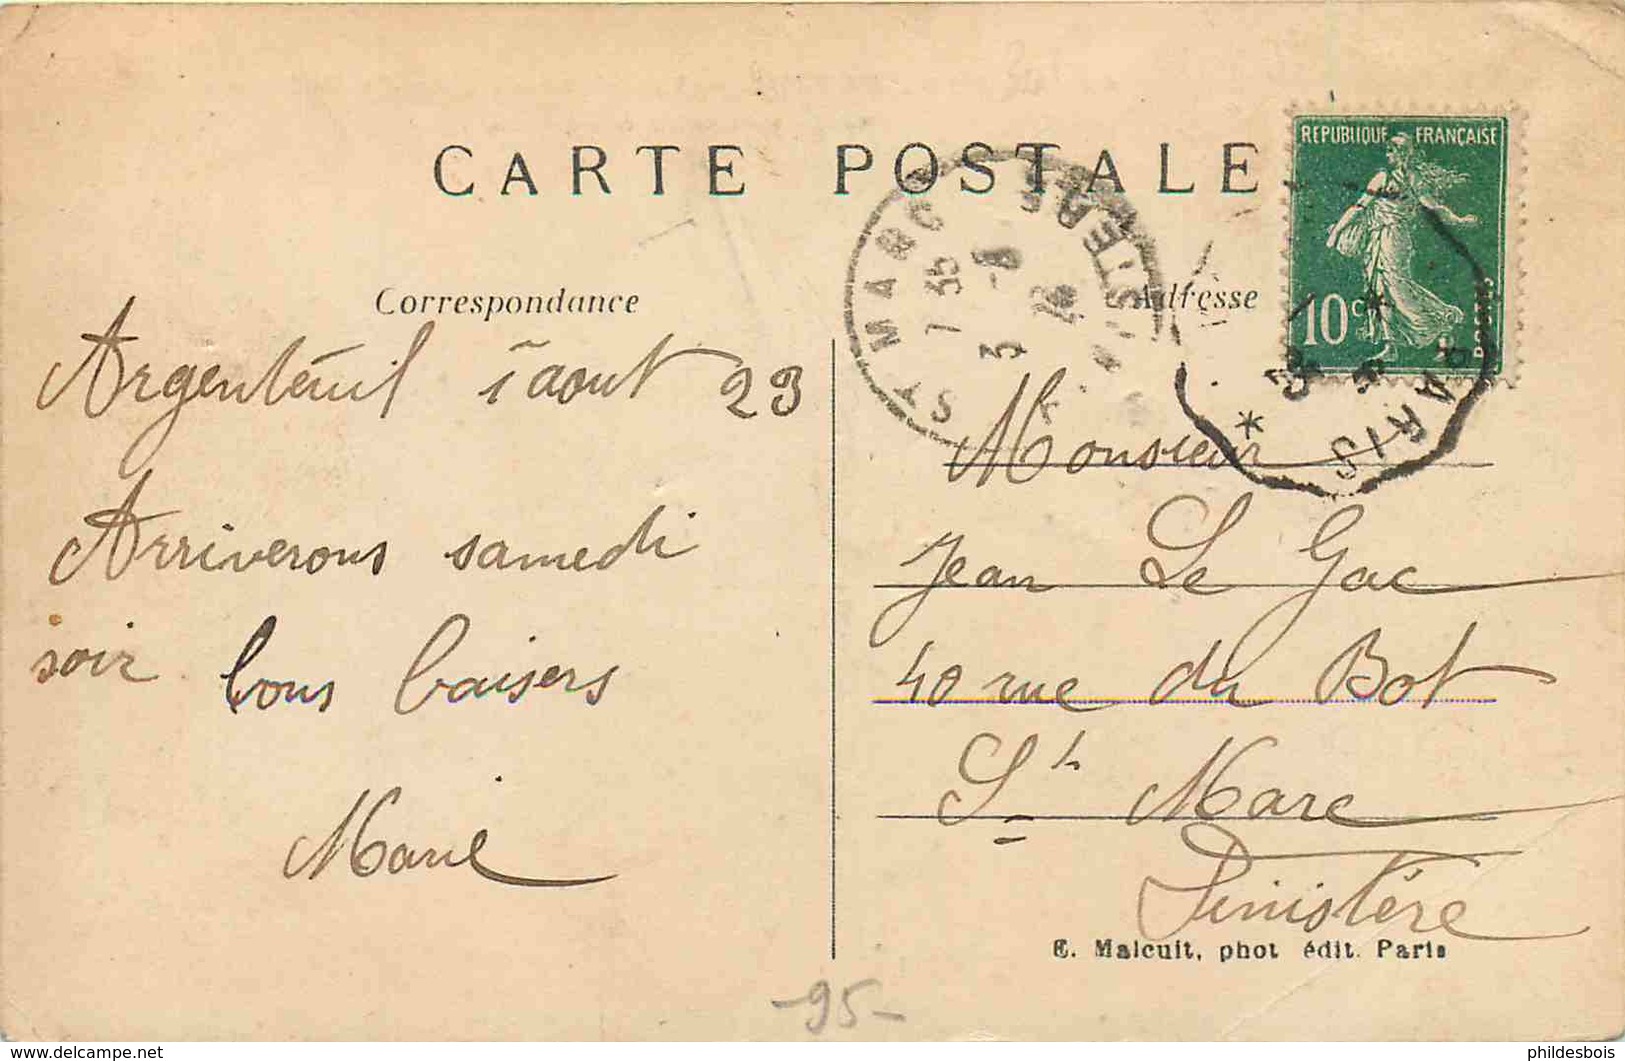 CARTE POSTALE
RÉPUBLIQUE FRANÇAISE
10c
POSTES
ST MARC
FINISTERE
7 35
3 - 8
23
PARIS
Correspondance
Adresse
Argenteuil 1 aout 23
Arriverons samedi
soir. bons baisers
Marie
Monsieur
Jean Le Gac
40 rue du Bot
St Marc
Finistère
E. Malcuit, phot édit. Paris
-95-
http://www.delcampe.net
phildesbois